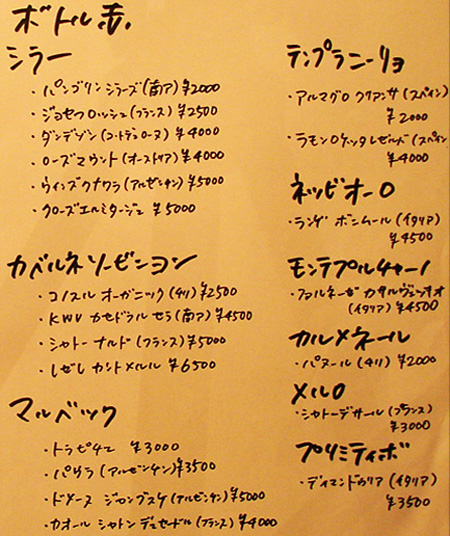 ボトル赤
シラー
・パンゴリン シラーズ(南ア)¥2000
・ジョセフロッシュ(フランス)¥2500
・ダンデゾン(コートデュローヌ)¥4000
・ローズマウント(オーストリア)¥4000
・ウィンズクナワラ(アルゼンチン)¥5000
・クローズエルミタージュ ¥5000
カベルネソービニヨン
・コノスル オーガニック(チリ)¥2500
・KWV カセドラル セラ(南ア)¥4500
・シャトー ナルド(フランス)¥5000
・レゼレカントメルル ¥6500
マルベック
・トラピチェ ¥3000
・パサラ(アルゼンチン)¥3500
・ドメーヌ ジロングスケ(アルゼンチン)¥5000
・カオール シャトン デュセードル(フランス)¥4000
テンプラニーリョ
・アルマグロ クリアンサ(スペイン)
¥2000
・ラモンロケッタレゼルバ(スペイン
¥4000
ネッビオーロ
・ランゲ ボンムール(イタリア)
¥4500
モンテプルチャーノ
・ファルネーゼ カサルヴェッキオ
(イタリア)¥4500
カルメネール
・パヌール(チリ)¥2000
メルロ
・シャトーデサール(フランス)
¥3000
プリミティボ
・ディアマンドゥリア(イタリア)
¥3500